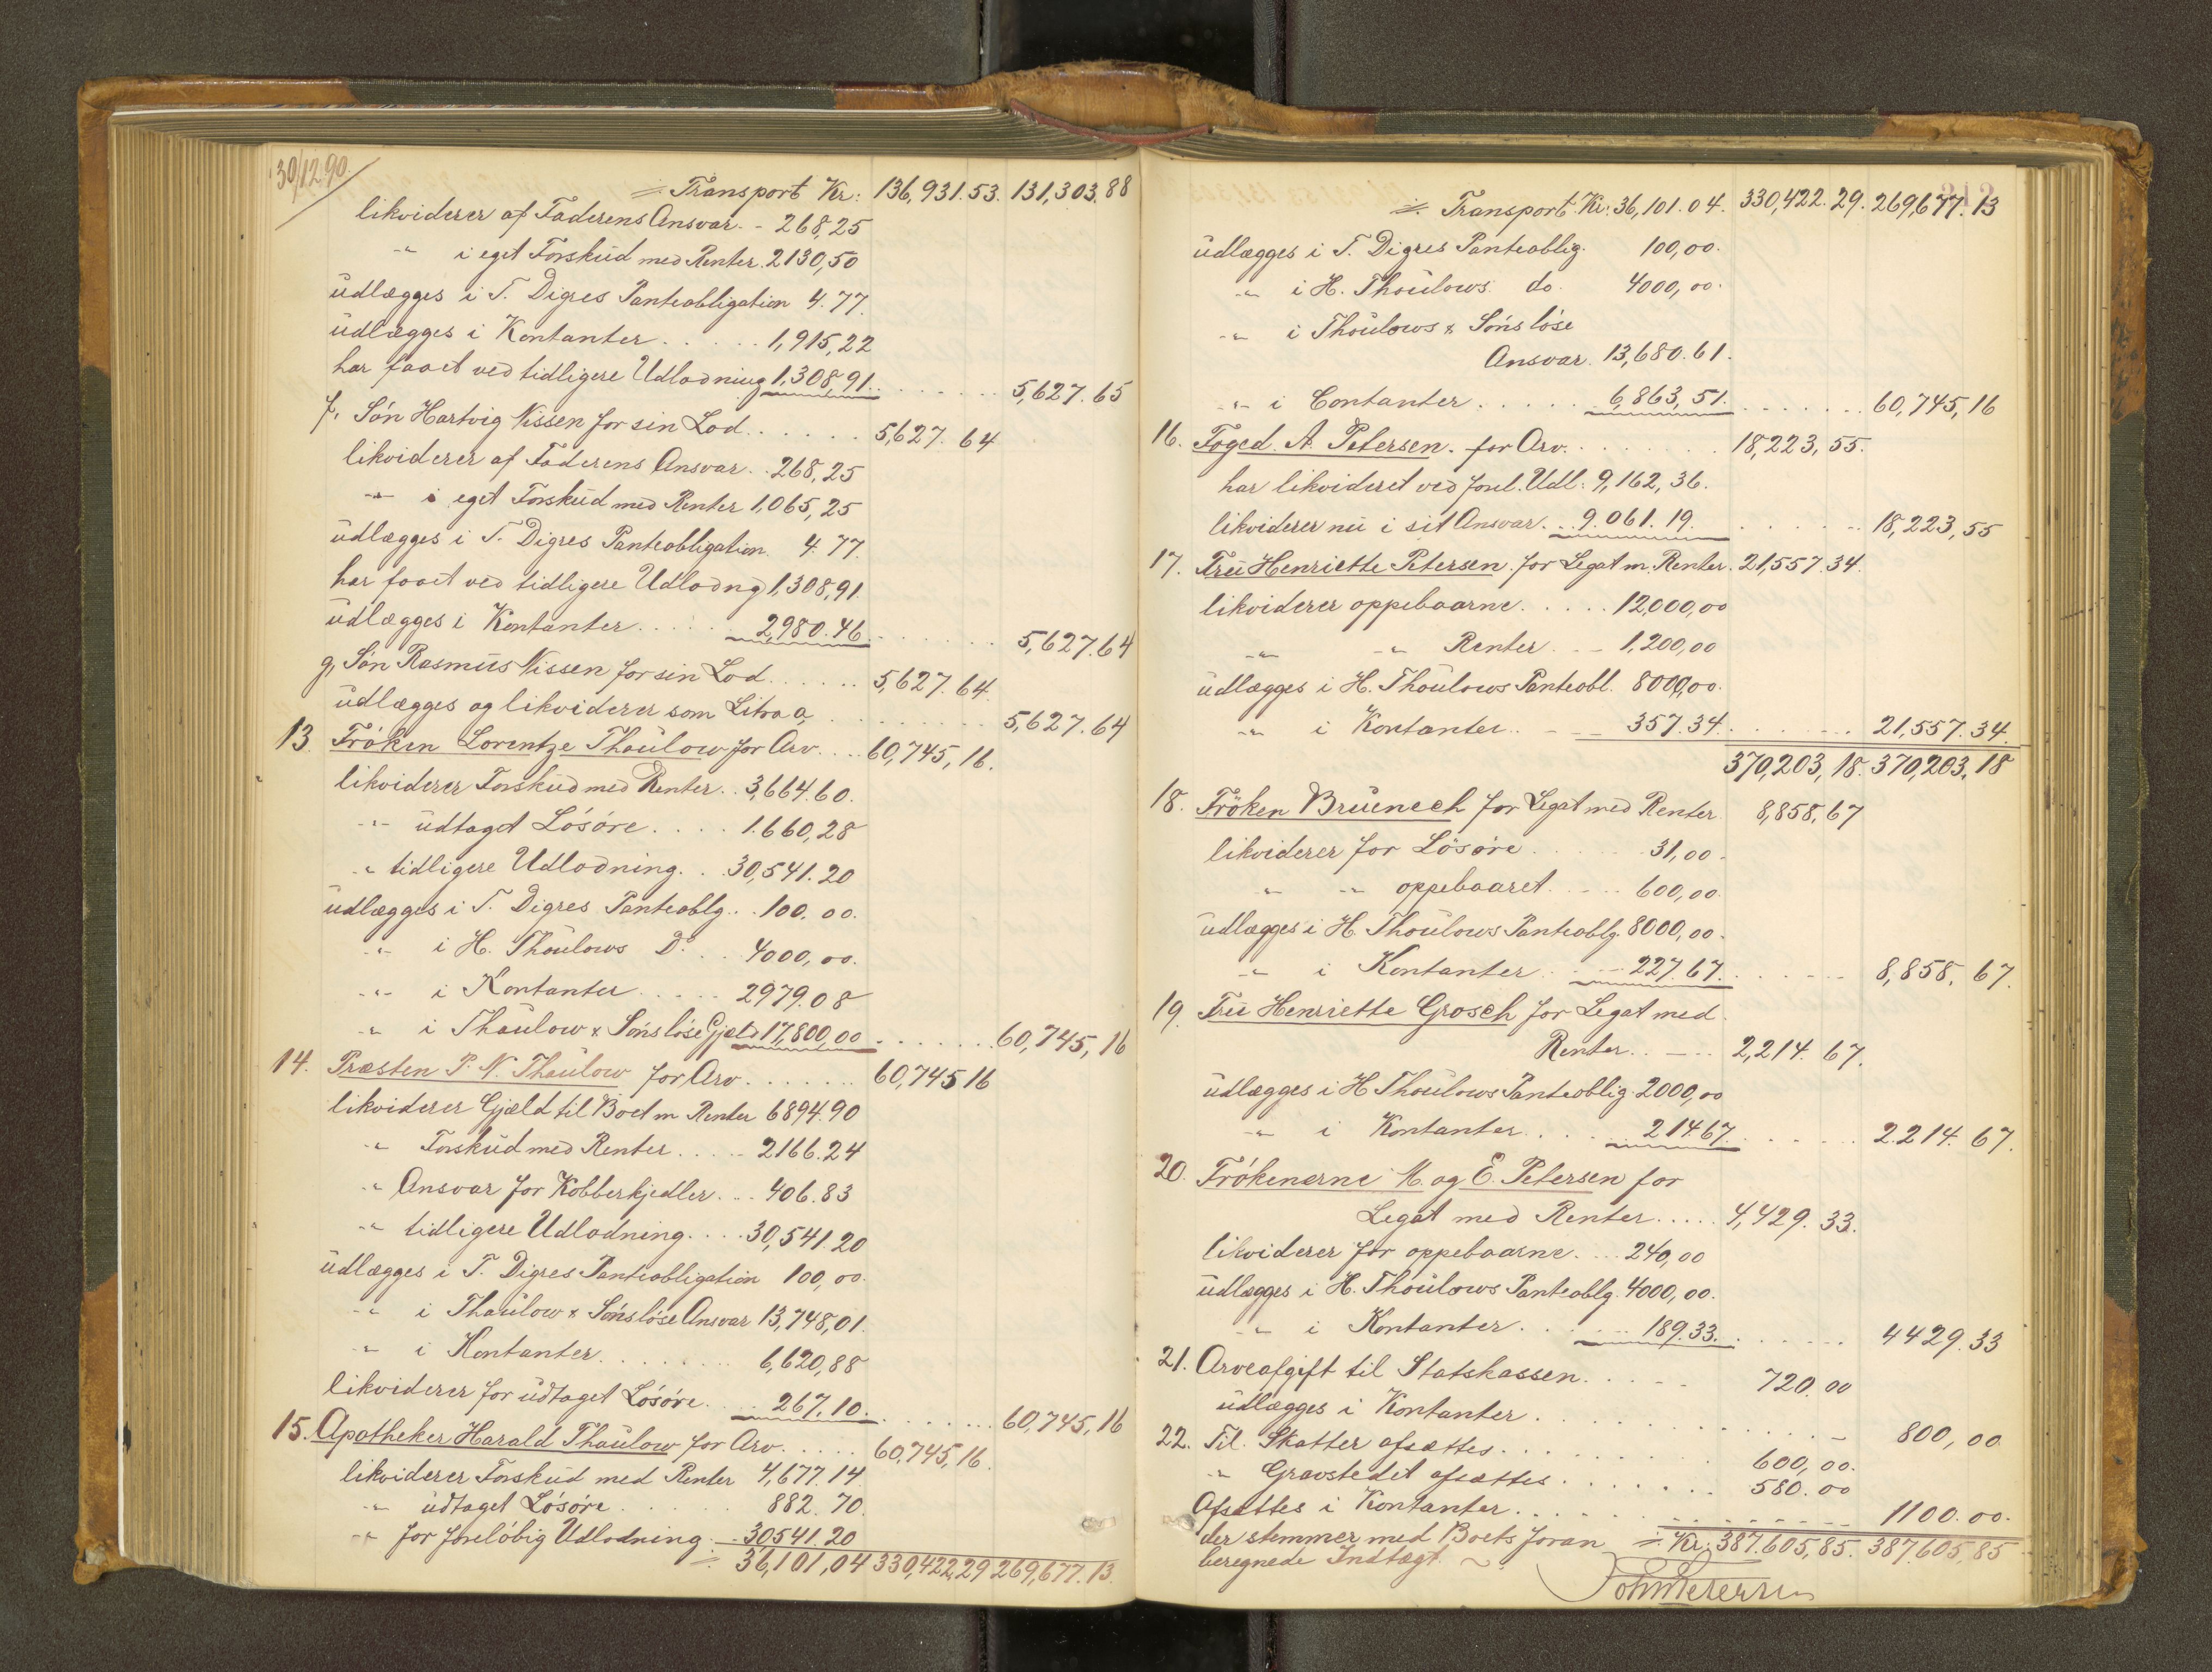 30/12 90
Transport Kr: 136,931.53. 131,303.88
likviderer af Faderens Ansvar. - 268,25
" i eget Forskud med Renter. 2130,50
udlægges i T. Digres Panteobligation 4.77.
udlægges i Kontanter . . . . . 1,915,22
har faaet ved tidligere Udlodning 1,308,91. . . . . . . 5,627.65
f, Søn Hartvig Nissen for sin Lod . . . . . . 5,627.64
likviderer af Faderens Ansvar. . 268,25
" i eget Forskud med Renter 1,065,25
udlægges i T. Digres Panteobligation. 4.77.
har faaet ved tidligere Udlodng 1,308,91.
udlægges i Kontanter . . . . . 2,980.46. . . . . . . 5,627.64
g, Søn Rasmus Nissen for sin Lod . . . . . . 5,627.64.
udlægges og likviderer som Litra a, . . . . . . . . 5,627.64
13. Frøken Lorentze Thaulow for Arv. . . . 60,745,16.
likviderer Forskud med Renter. . 3,664.60.
" udtaget Løsøre . . . . 1.660,28
" tidligere Udlodning. . . 30,541.20
udlægges i T. Digres Panteoblg. . . 100.00.
" i H. Thaulows Do. . . 4000,00.
" i Kontanter . . . . . 2979.08
" i Thaulow & Sønsløse Gjæld 17,800,00 . . . . . . . 60,745,16
14. Præsten P. N. Thaulow for Arv. . . . . . . 60,745 16
likviderer Gjæld til Boet m Renter 6894.90
" Forskud med Renter. . . . . 2166.24
" Ansvar for Kobberkjedler. . . 406.83
" tidligere Udlodning. . . . 30,541.20
udlægges i T. Digres Panteobligation 100,00.
" i Thaulow & Sønsløse Ansvar 13,748,01.
" i Kontanter. . . . . . . . 6,620,88
likviderer for udtaget Løsøre. . . . 267.10. . . . . . . 60,745,16
15. Apotheker Harald Thaulow for Arv. . . . . 60,745,16.
likviderer Forskud med Renter 4,677.14
" udtaget Løsøre . . . . . . 882.70.
" for foreløbig Udlodning . . 30541.20
36,101,04 330,422,29 269,677.13.
Transport Kr. 36,101.04. 330,422.29. 269,677.13
udlægges i T. Digres Panteoblig. 100,00.
" i H. Thaulows do. 4000,00.
" i Thaulows & Søns løse
Ansvar. 13,680.61.
" i Contanter . . . . . . 6,863,51. . . . . . . . 60,745,16
16. Foged A. Petersen. for Arv. . . . . . . . 18,223,55.
har likvideret ved forel. Udl. 9,162,36.
likviderer nu i sit Ansvar. . . 9.061.19. . . . . . . 18,223,55
17. Fru Henriette Petersen for Legat m. Renter. 21,557.34.
likviderer oppebaarne. . . . . 12,000,00
" " Renter . . . 1,200,00
udlægges i H. Thaulows Panteobl. 8000,00.
" i Kontanter. . . . 357.34. . . . . . . . 21,557.34.
370,203,18. 370,203,18
18. Frøken Bruenech for Legat med Renter 8,858,67
likviderer for Løsøre . . . . . 31,00.
" " oppebaaret. . . . . 600,00.
udlægges i H. Thaulows Panteoblg. 8000,00.
" i Kontanter . . . . 227.67. . . . . . . 8,858,67.
19. Fru Henriette Grosch for Legat med
Renter. . . . . 2,214.67.
udlægges i H Thaulows Panteoblig. 2000,00
" i Kontanter. . . . . 214.67. . . . . . . 2.214.67.
20. Frøkenerne M. og E. Petersen for
Legat med Renter. . . . . 4,429.33.
likviderer for oppebaarne. . . . 240,00
udlægges i H. Thaulows Panteoblg. 4000,00.
" i Kontanter. . . . . 189.33. . . . . . . 4429.33
21. Arveafgift til Statskassen. . . . . . 720.00
udlægges i Kontanter . . . . . . . . . . . . 800,00.
22. Til Skatter afsættes. . . . . . . . . . 600,00.
" Gravstedet afsættes . . . . . . . . 580.00
Afsættes i Kontanter. . . . . . . . . . . . . 1100.00.
der stemmer med Boets foran Kr. 387.605,85. 387,605,85
beregnede Indtægt.